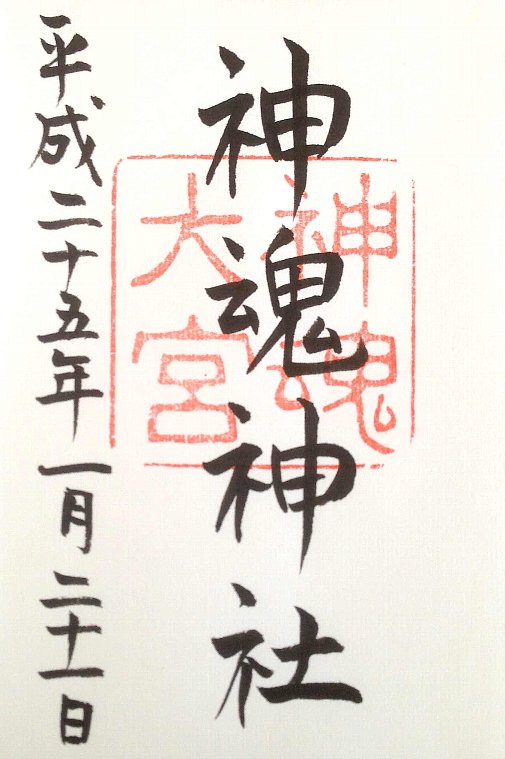 神魂神社
神魂
大宮
平成二十五年一月二十一日